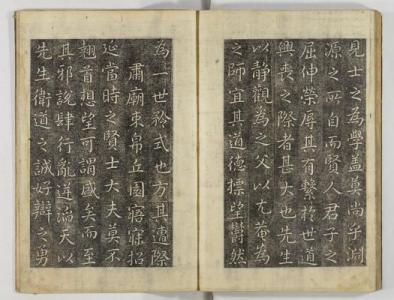 見士之為學蓋莫尚乎淵
源之所自而賢人君子之
屈伸榮辱其有繫於世道
興喪之際者甚大也先生
以靜觀為之父以尤菴為
之師宜其道德標望鬱然
為一世矜式也方其遭際
肅廟束帛丘園寤寐招
延當時之賢士大夫莫不
翹首想望可謂盛矣而至
其邪說肆行亂逆滔天以
先生衛道之誠好辯之勇